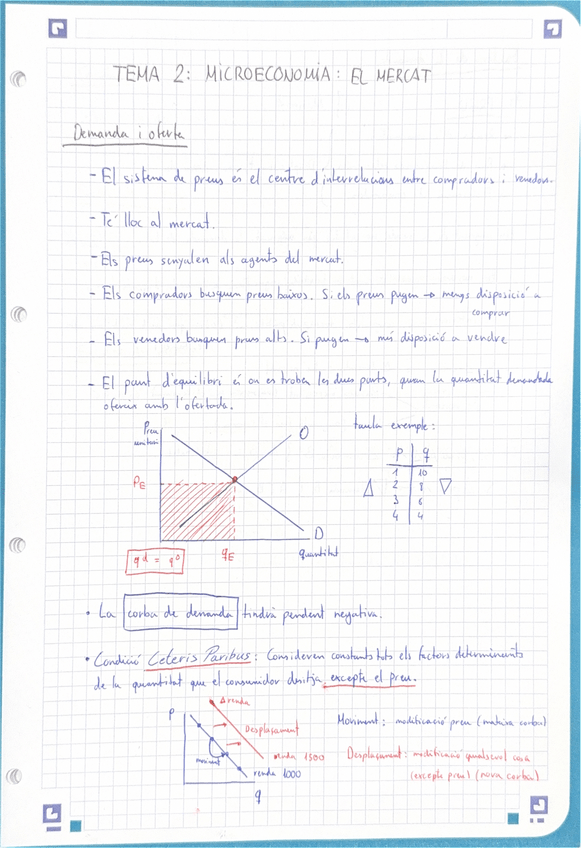 TEMA 2: MICROECONOMIA: EL MERCAT
Demanda i oferta
- El sistema de preus és el centre d'interrelacions entre compradors i venedors.
- Té lloc al mercat.
- Els preus senyalen als agents del mercat.
- Els compradors busquen preus baixos. Si els preus pugen → menys disposició a
comprar
- Els venedors busquen preus alts. Si pugen → més disposició a vendre
- El punt d'equilibri és on es troben les dues parts, quan la quantitat demandada
amb l'ofertada.
Preu
unitari
O
PE
D
qE
quantitat
qd = qo
taula exemple:
P q
1 10
2 8
3 6
4 4
• La corba de demanda tindrà pendent negativa.
• Condició Ceteris Paribus: Consideren constants tots els factors determinants
de la quantitat que el consumidor desitja, excepte el preu.
P
Δ renda
Desplaçament
moviment
renda 1500
renda 1000
q
Moviment: modificació preu (mateixa corba)
Desplaçament: modificació qualsevol cosa
(excepte preu) (nova corba)